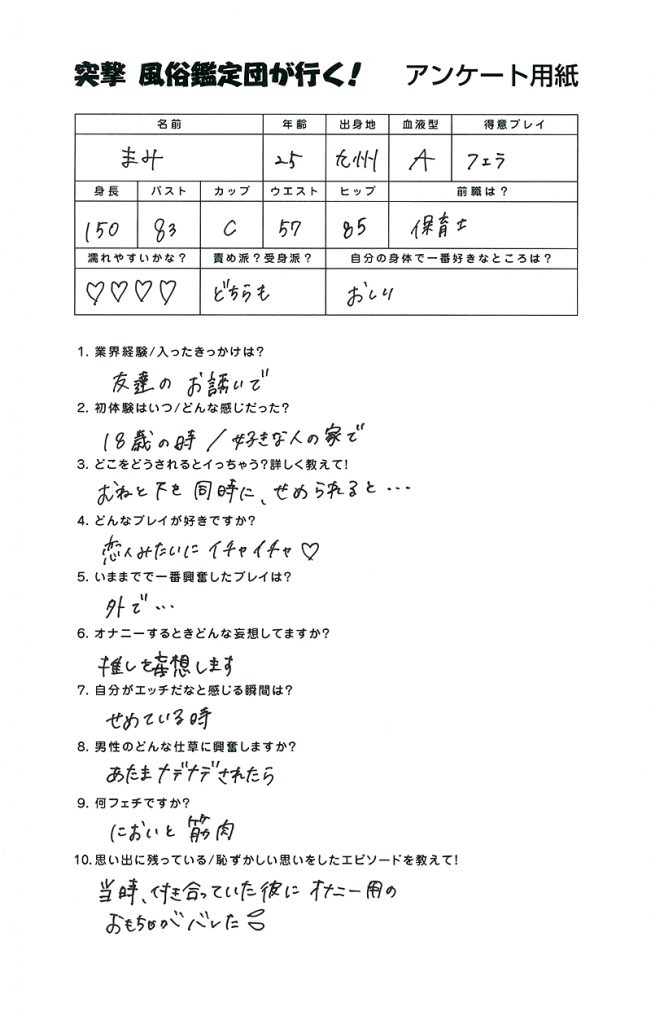 突撃 風俗鑑定団が行く! アンケート用紙
名前 年齢 出身地 血液型 得意プレイ
まみ 25 九州 A フェラ
身長 バスト カップ ウエスト ヒップ 前職は?
150 83 C 57 85 保育士
濡れやすいかな? 責め派?受身派? 自分の身体で一番好きなところは?
♡♡♡♡ どちらも おしり
1. 業界経験/入ったきっかけは?
友達の お誘いで
2. 初体験はいつ/どんな感じだった?
18歳の時/好きな人の家で
3. どこをどうされるとイっちゃう?詳しく教えて!
むねと下を 同時に、せめられると…
4. どんなプレイが好きですか?
恋人みたいに イチャイチャ♡
5. いままでで一番興奮したプレイは?
外で…
6. オナニーするときどんな妄想してますか?
推しを妄想します
7. 自分がエッチだなと感じる瞬間は?
せめている時
8. 男性のどんな仕草に興奮しますか?
あたまナデナデされたら
9. 何フェチですか?
においと 筋肉
10.思い出に残っている/恥ずかしい思いをしたエピソードを教えて!
当時、付き合っていた彼に オナニー用の
おもちゃがバレた